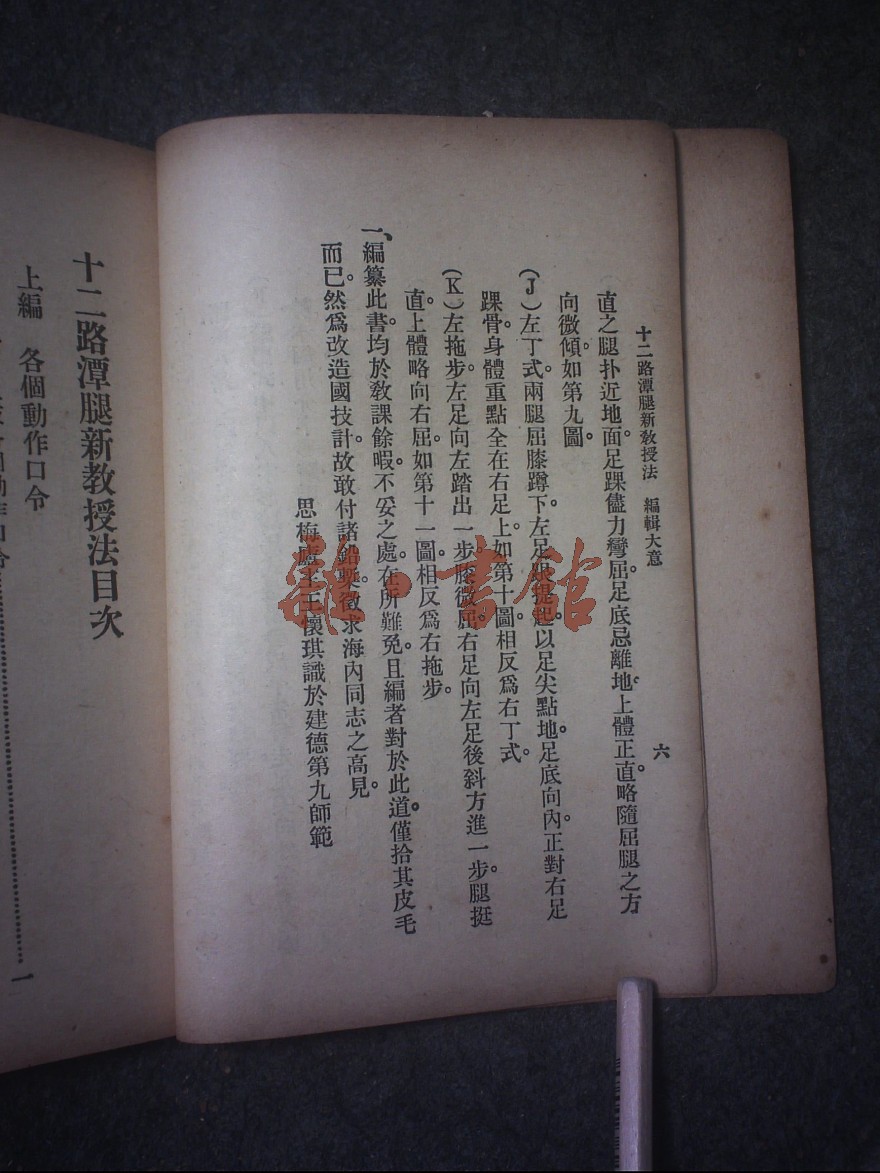 十二路潭腿新敎授法　編輯大意　六
直之腿扑近地面。足踝儘力彎屈。足底忌離地。上體正直。略隨屈腿之方
向微傾。如第九圖。
(J)左丁式。兩腿屈膝蹲下。左足跟提起。以足尖點地。足底向內。正對右足
踝骨。身體重點全在右足上。如第十圖。相反爲右丁式。
(K)左拖步。左足向左踏出一步。膝微屈。右足向左足後斜方進一步。腿挺
直。上體略向右屈。如第十一圖。相反爲右拖步。
一、編纂此書。均於敎課餘暇。不妥之處。在所難免。且編者對於此道。僅拾其皮毛
而已。然爲改造國技計。故敢付諸鉛槧。徵求海內同志之高見。
思梅廬主王懷琪識於建德第九師範
十二路潭腿新教授法目次
上編　各個動作口令
一
書館